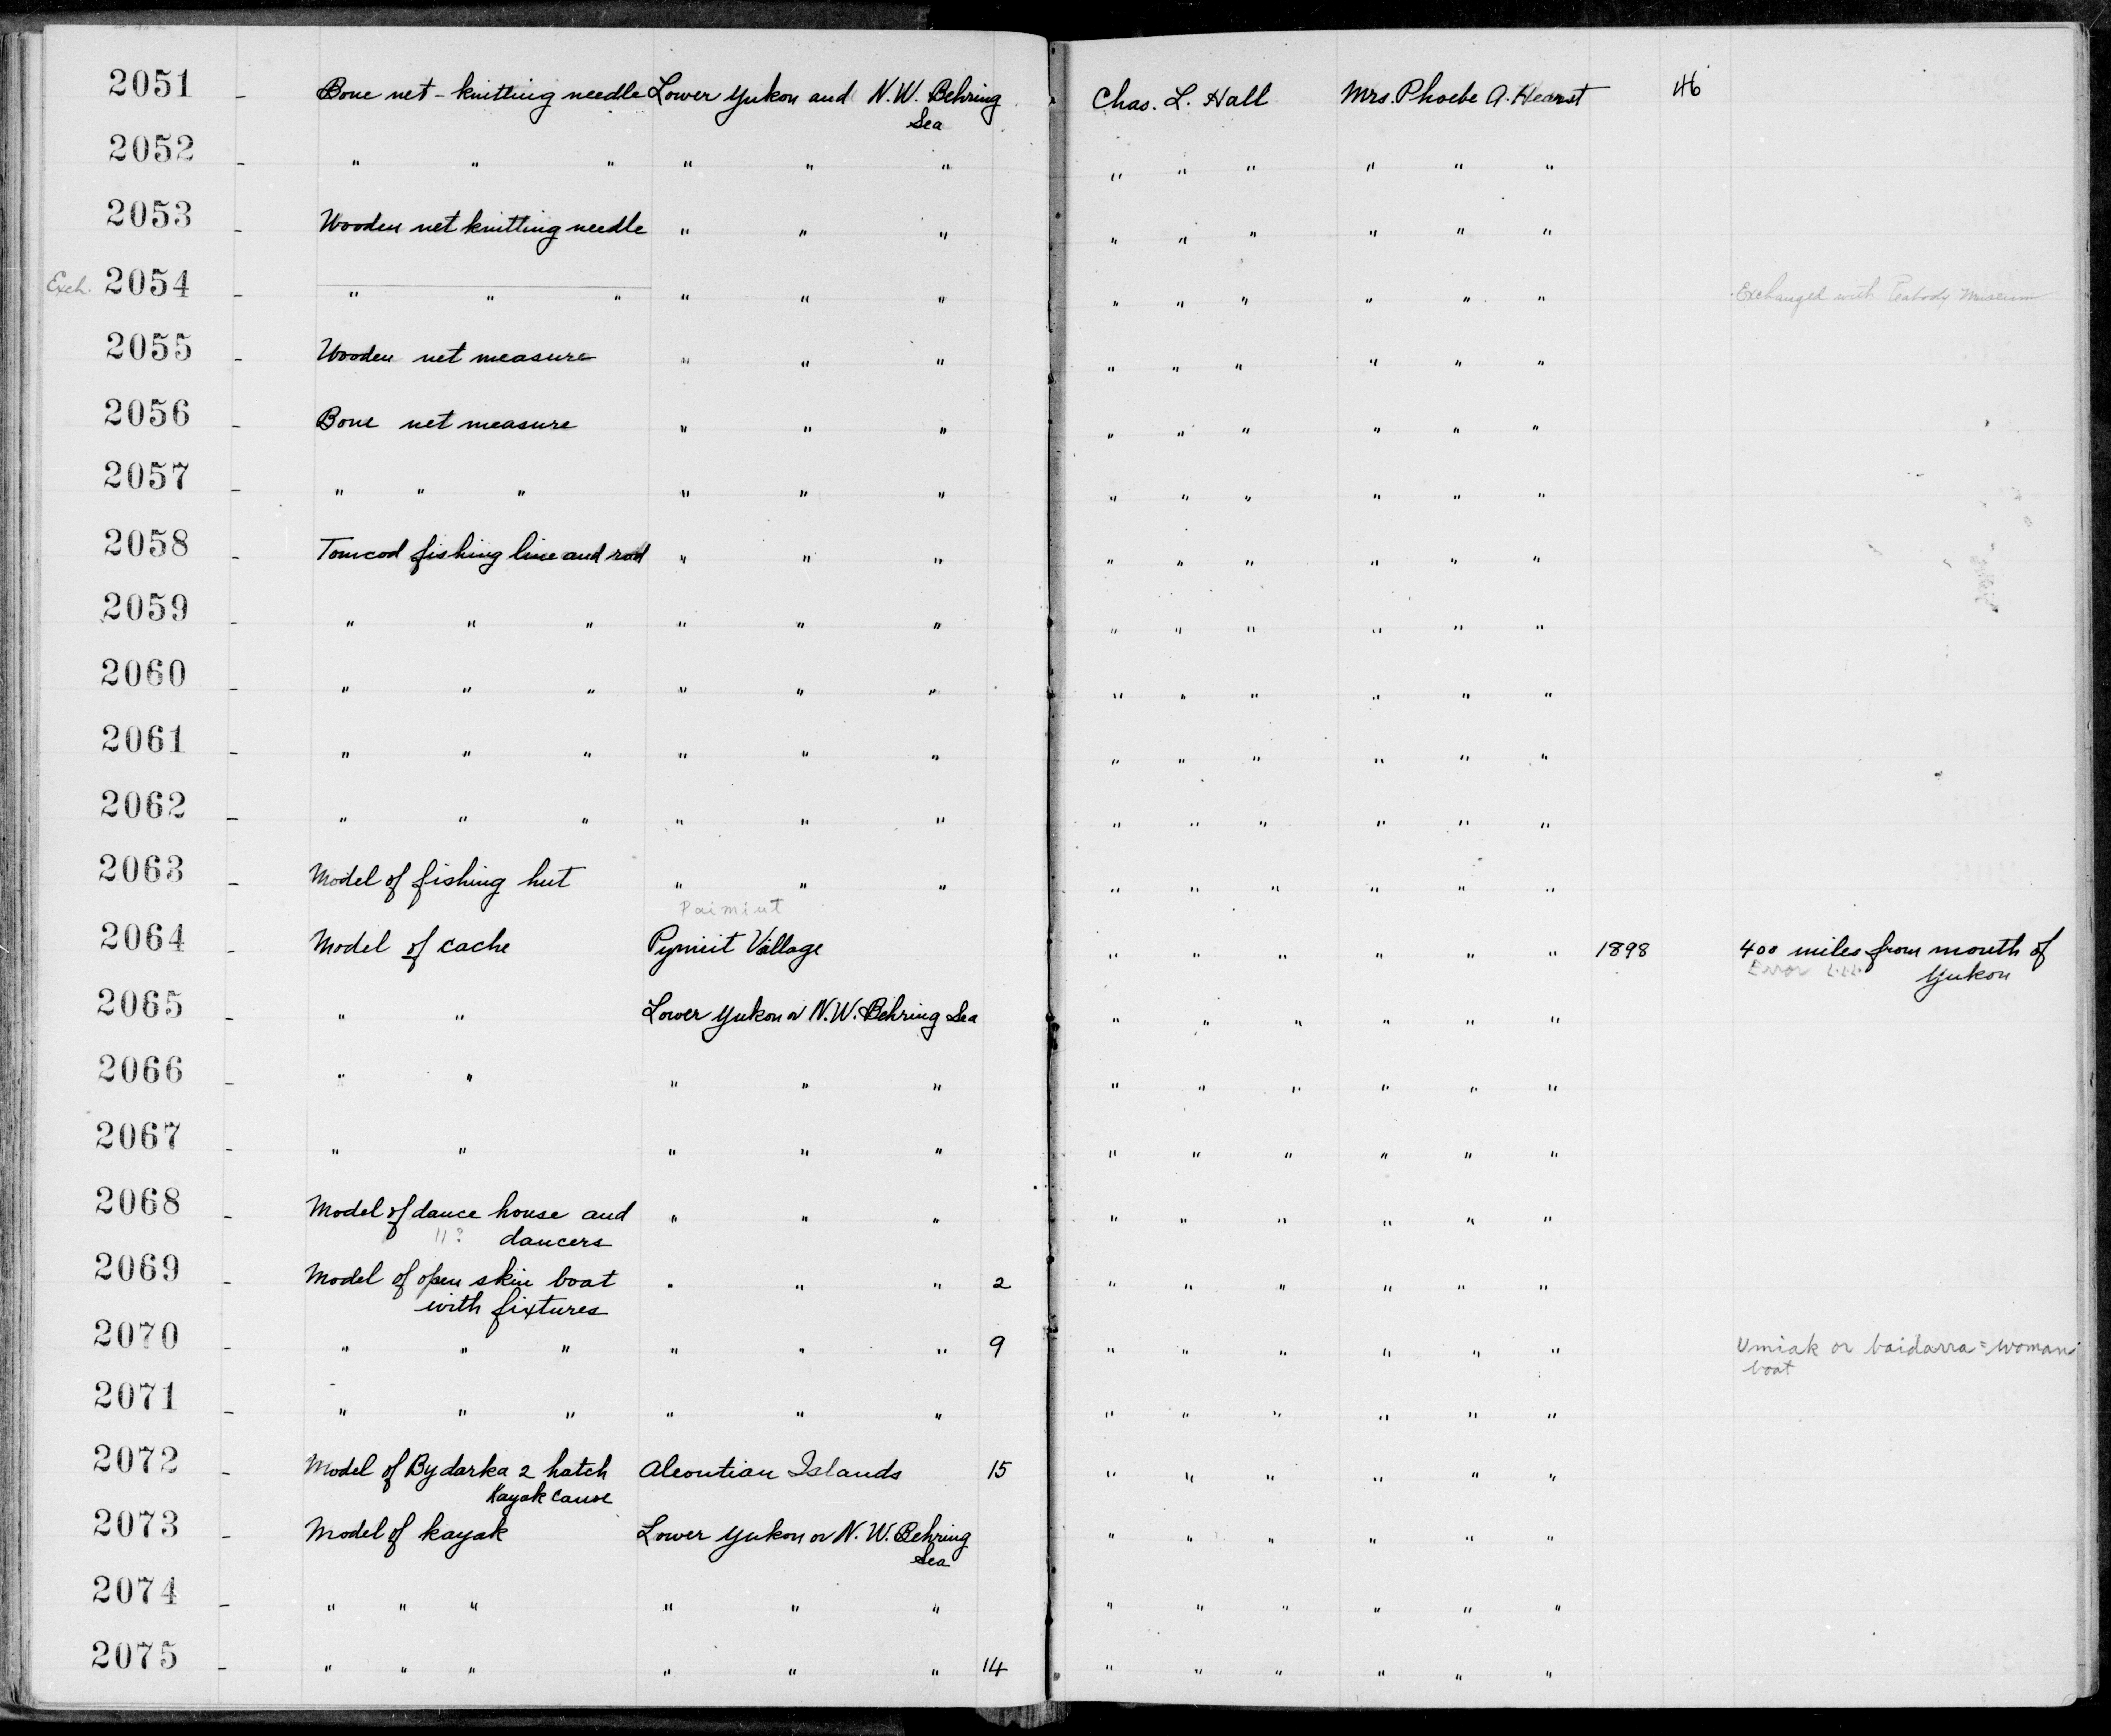 2051 - Bone net-knitting needle Lower Yukon and N.W. Behring Sea Chas. L. Hall Mrs. Phoebe A. Hearst 46
2052 - " " " " " " " " " " " "
2053 - Wooden net knitting needle " " " " " " " " "
Exch. 2054 - " " " " " " " " " " " " Exchanged with Peabody Museum
2055 - Wooden net measure " " " " " " " " "
2056 - Bone net measure " " " " " " " " "
2057 - " " " " " " " " " " " "
2058 - Tomcod fishing line and rod " " " " " " " " "
2059 - " " " " " " " " " " " "
2060 - " " " " " " " " " " " "
2061 - " " " " " " " " " " " "
2062 - " " " " " " " " " " " "
2063 - Model of fishing hut " " " " " " " " "
Paimiut
2064 - Model of cache Pymiut Village " " " " " " 1898 400 miles from mouth of
Error Yukon
2065 - " " Lower Yukon or N.W. Behring Sea " " " " " "
2066 - " " " " " " " " " " "
2067 - " " " " " " " " " " "
2068 - Model of dance house and " " " " " " " " "
"? dancers
2069 - Model of open skin boat " " " 2 " " " " " "
with fixtures
2070 - " " " " " " 9 " " " " " " Umiak or baidarra = woman
boat
2071 - " " " " " " " " " " " "
2072 - Model of Bydarka 2 hatch Aleoutian Islands 15 " " " " " "
Kayak Canoe
2073 - Model of kayak Lower Yukon or N.W. Behring " " " " " "
Sea
2074 - " " " " " " " " " " " "
2075 - " " " " " " 14 " " " " " "